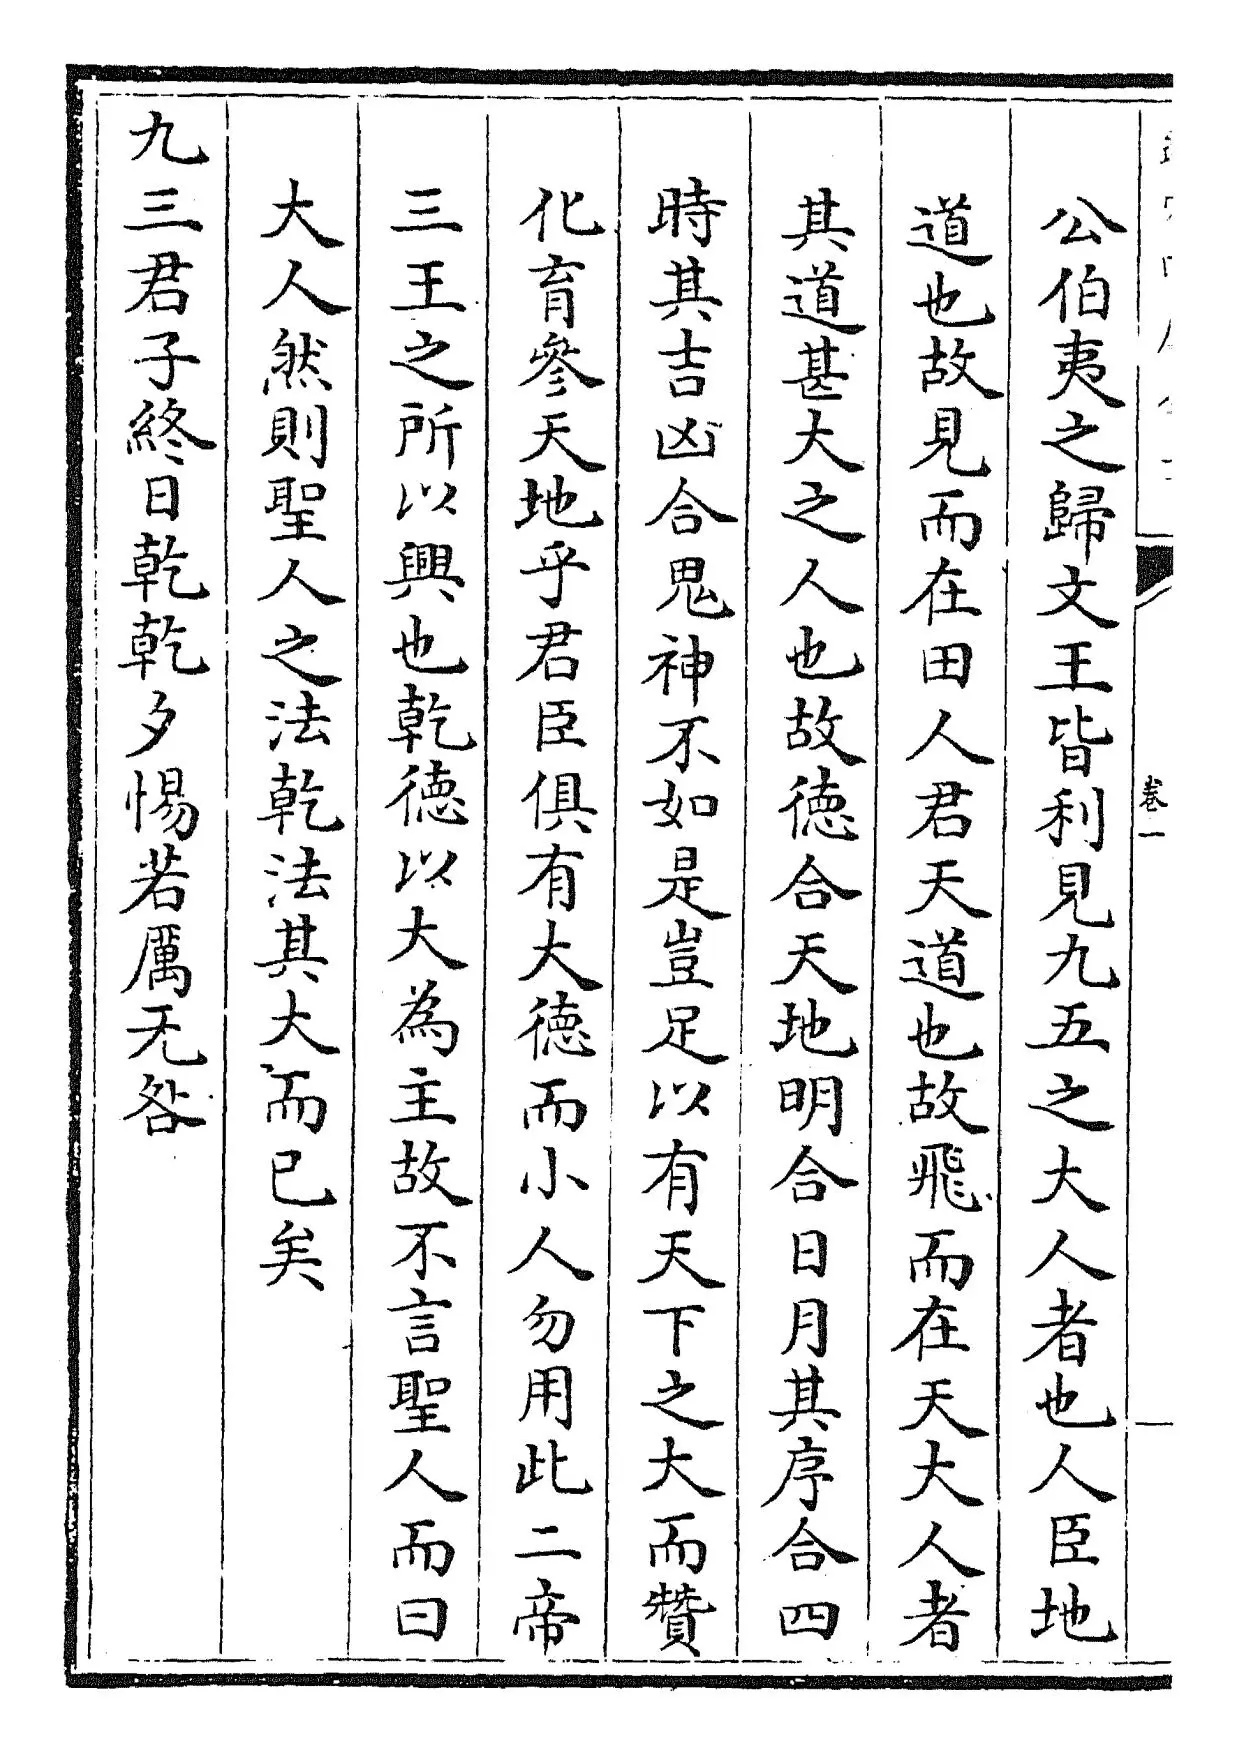 卷一
公伯夷之歸文王皆利見九五之大人者也人臣地
道也故見而在田人君天道也故飛而在天大人者
其道甚大之人也故德合天地明合日月其序合四
時其吉凶合鬼神不如是豈足以有天下之大而贊
化育參天地乎君臣俱有大德而小人勿用此二帝
三王之所以興也乾德以大為主故不言聖人而曰
大人然則聖人之法乾法其大而已矣
九三君子終日乾乾夕惕若厲无咎